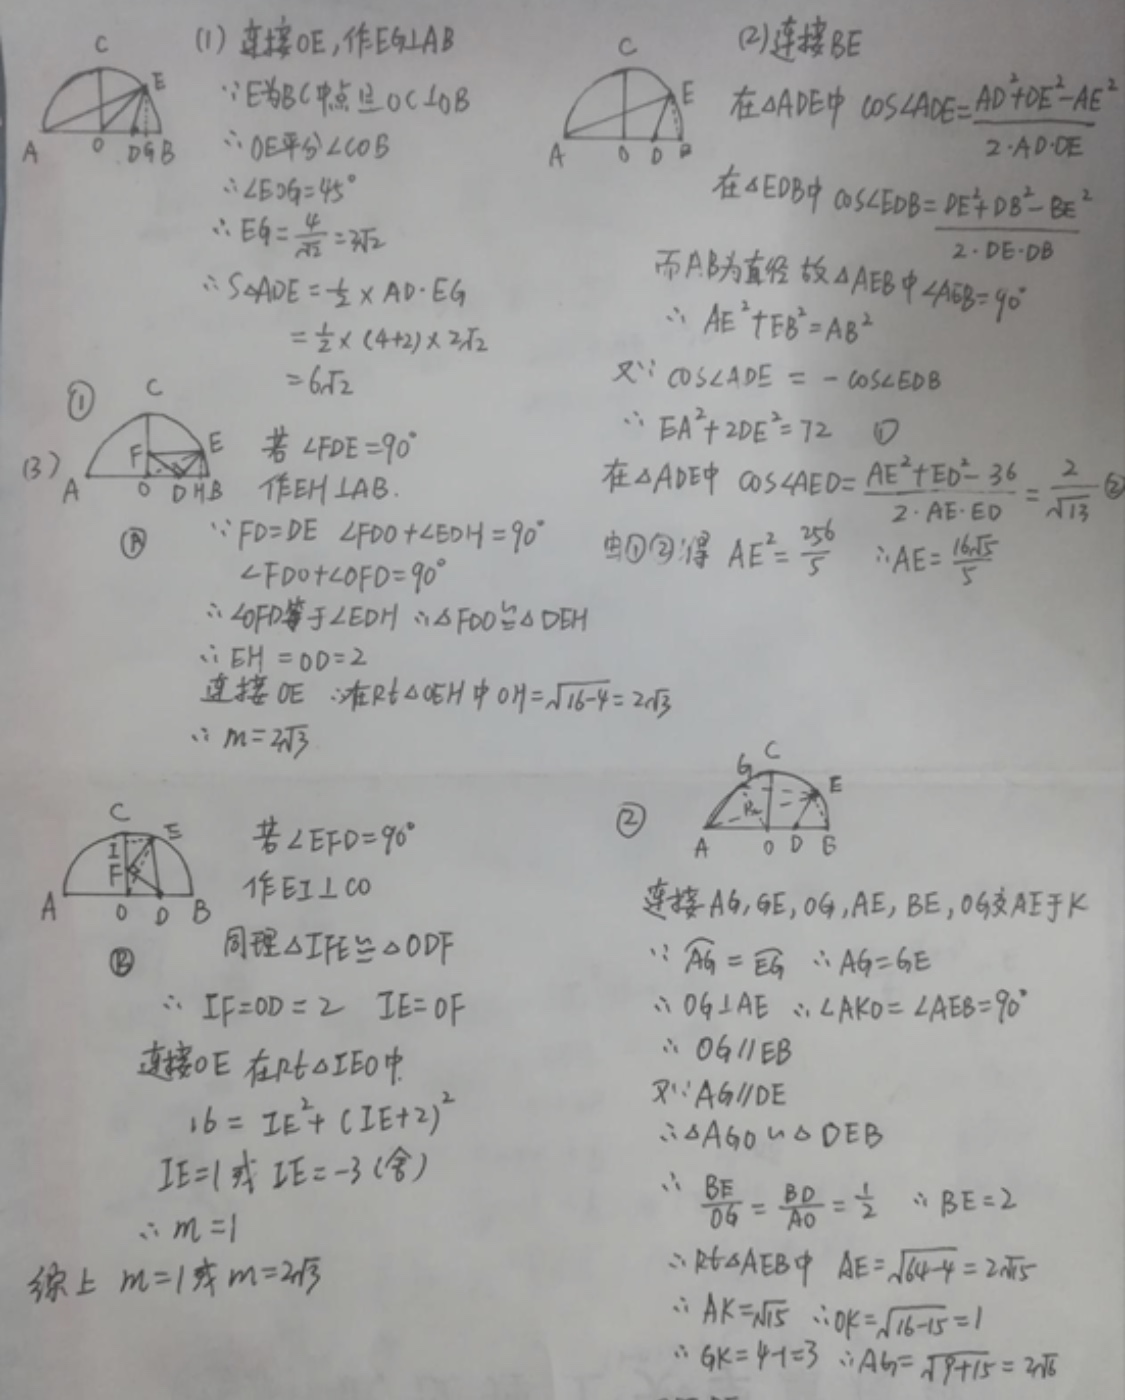 (1) 连接OE,作EG⊥AB
∵E为BC中点且OC⊥OB
∴OE平分∠COB
∴∠EOG=45°
∴EG=4/√2=2√2
∴S△ADE=½×AD·EG
=½×(4+2)×2√2
=6√2
C
E
A
O
D
G
B
(2)连接BE
在△ADE中 cos∠ADE=(AD²+DE²-AE²)/(2·AD·DE)
在△EDB中 cos∠EDB=(DE²+DB²-BE²)/(2·DE·DB)
而AB为直径 故△AEB中∠AEB=90°
∴ AE²+EB²=AB²
又∵ cos∠ADE = -cos∠EDB
∴ EA²+2DE²=72 ①
在△ADE中 cos∠AED=(AE²+ED²-36)/(2·AE·ED)=2/√13 ②
由①②得 AE²=256/5 ∴AE=16√5/5
C
E
A
O
D
B
(3)
①
C
F
E
A
O
D
H
B
Ⓐ
若∠FDE=90°
作EH⊥AB.
∵FD=DE ∠FDO+∠EDH=90°
∠FDO+∠OFD=90°
∴∠OFD等于∠EDH ∴△FDO≌△DEH
∴EH=OD=2
连接OE ∴在Rt△OEH中OH=√(16-4)=2√3
∴m=2√3
C
I
E
F
A
O
D
B
Ⓑ
若∠EFD=90°
作EI⊥CO
同理△IFE≌△ODF
∴ IF=OD=2 IE=OF
连接OE 在Rt△IEO中
16=IE²+(IE+2)²
IE=1或IE=-3(舍)
∴m=1
综上 m=1或m=2√3
②
G
C
E
K
A
O
D
B
连接AG,GE,OG,AE,BE,OG交AE于K
∵ A͡G=E͡G ∴AG=GE
∴OG⊥AE ∴∠AKO=∠AEB=90°
∴ OG//EB
又∵AG//DE
∴△AGO∽△DEB
∴ BE/OG=BD/AO=1/2 ∴BE=2
∴Rt△AEB中 AE=√(64-4)=2√15
∴AK=√15 ∴OK=√(16-15)=1
∴GK=4-1=3 ∴AG=√(9+15)=2√6